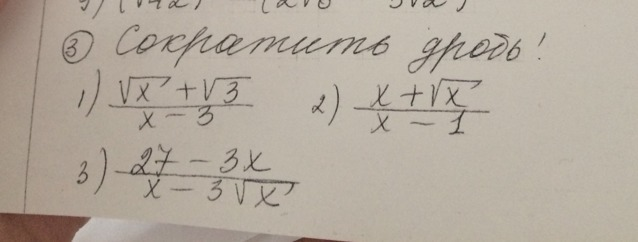 ③ Сократить дробь!
1) (√x + √3)/(x − 3) 2) (x + √x)/(x − 1)
3) (27 − 3x)/(x − 3√x)